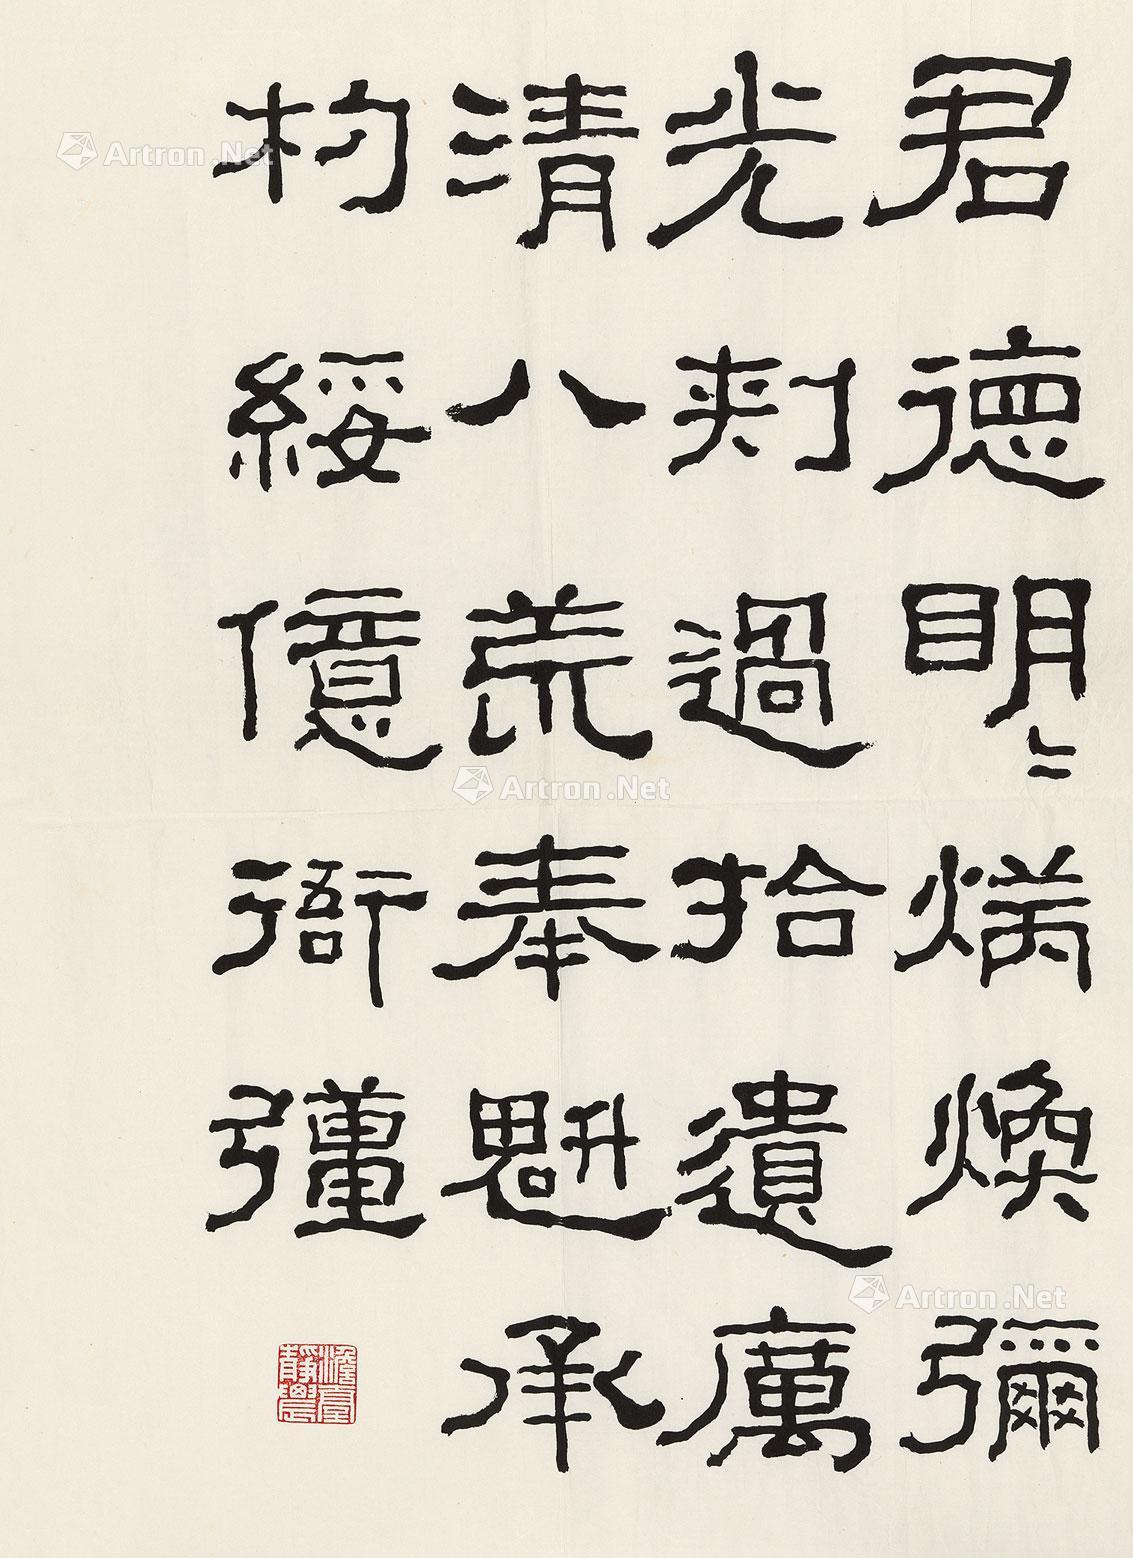 君德明〻炳煥彌
光刺過拾遺厲
清八荒奉魁承
杓綏億衙彊
澹臺
靜農
Artron .Net
Artron .Net
Artron .Net